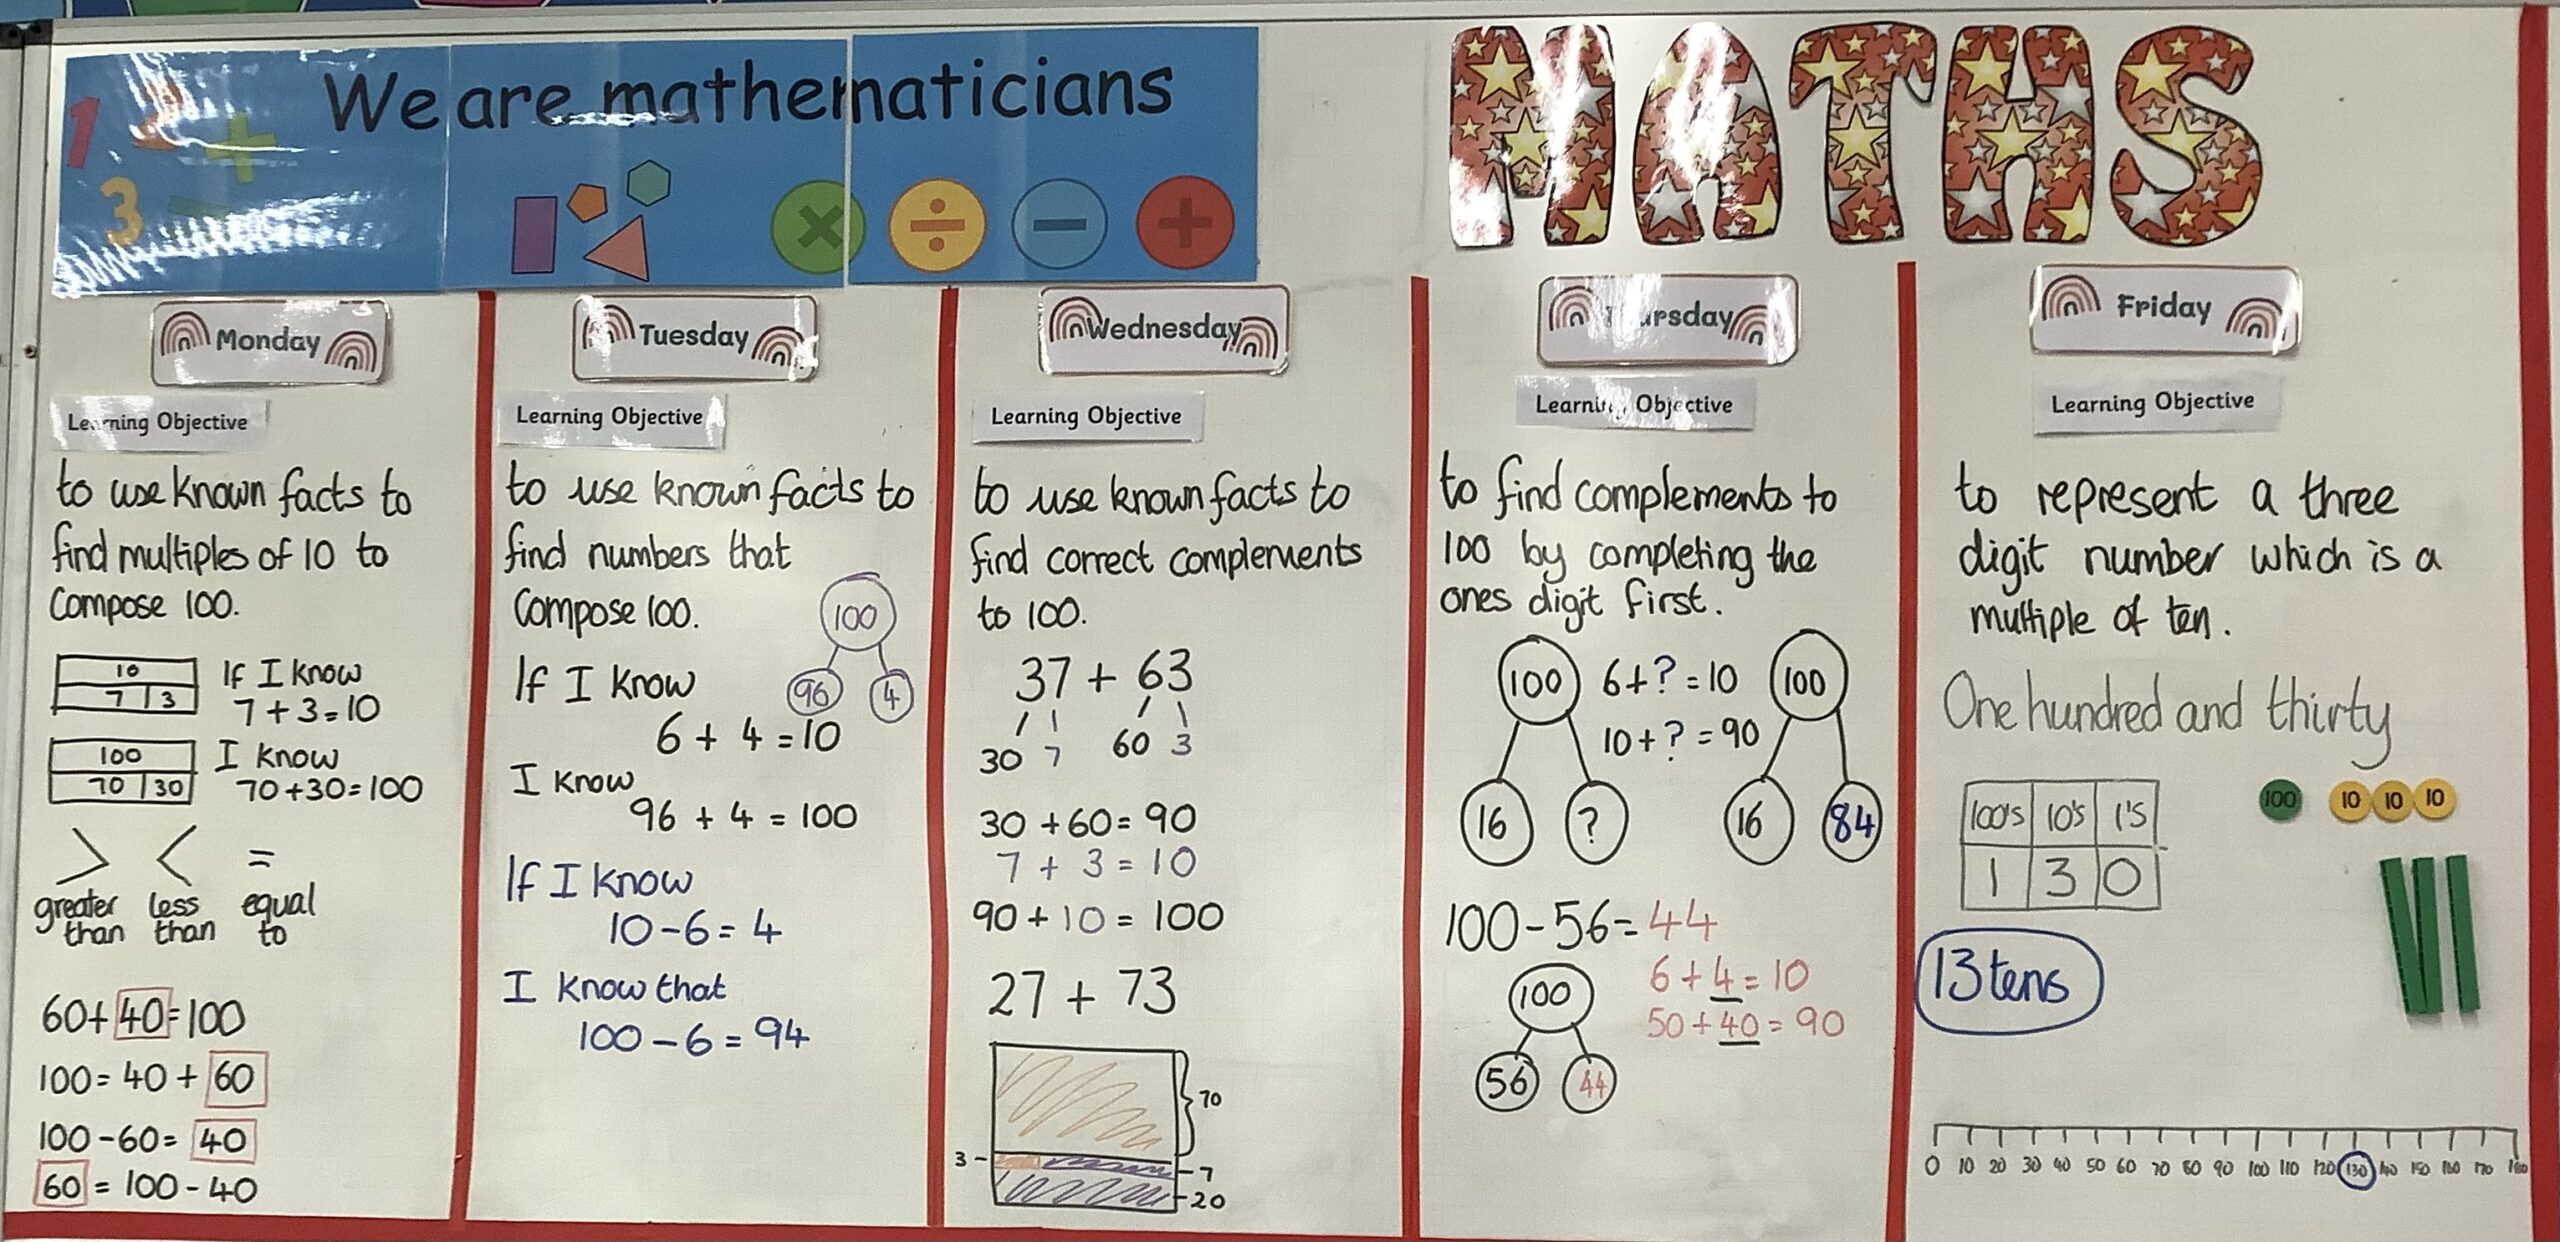 We are mathematicians
MATHS
1
3
Monday
Learning Objective
to use known facts to
find multiples of 10 to
compose 100.
10
7 3
If I know
7 + 3 = 10
100
70 30
I know
70 + 30 = 100
> < =
greater than
less than
equal to
60 + 40 = 100
100 = 40 + 60
100 - 60 = 40
60 = 100 - 40
Tuesday
Learning Objective
to use known facts to
find numbers that
compose 100.
100
96 4
If I know
6 + 4 = 10
I know
96 + 4 = 100
If I know
10 - 6 = 4
I know that
100 - 6 = 94
Wednesday
Learning Objective
to use known facts to
find correct complements
to 100.
37 + 63
30 7 60 3
30 + 60 = 90
7 + 3 = 10
90 + 10 = 100
27 + 73
70
3
7
20
Thursday
Learning Objective
to find complements to
100 by completing the
ones digit first.
100
16 ?
6 + ? = 10
10 + ? = 90
100
16 84
100 - 56 = 44
6 + 4 = 10
50 + 40 = 90
100
56 44
Friday
Learning Objective
to represent a three
digit number which is a
multiple of ten.
One hundred and thirty
100's 10's 1's
1 3 0
100 10 10 10
13 tens
0 10 20 30 40 50 60 70 80 90 100 110 120 130 140 150 160 170 180